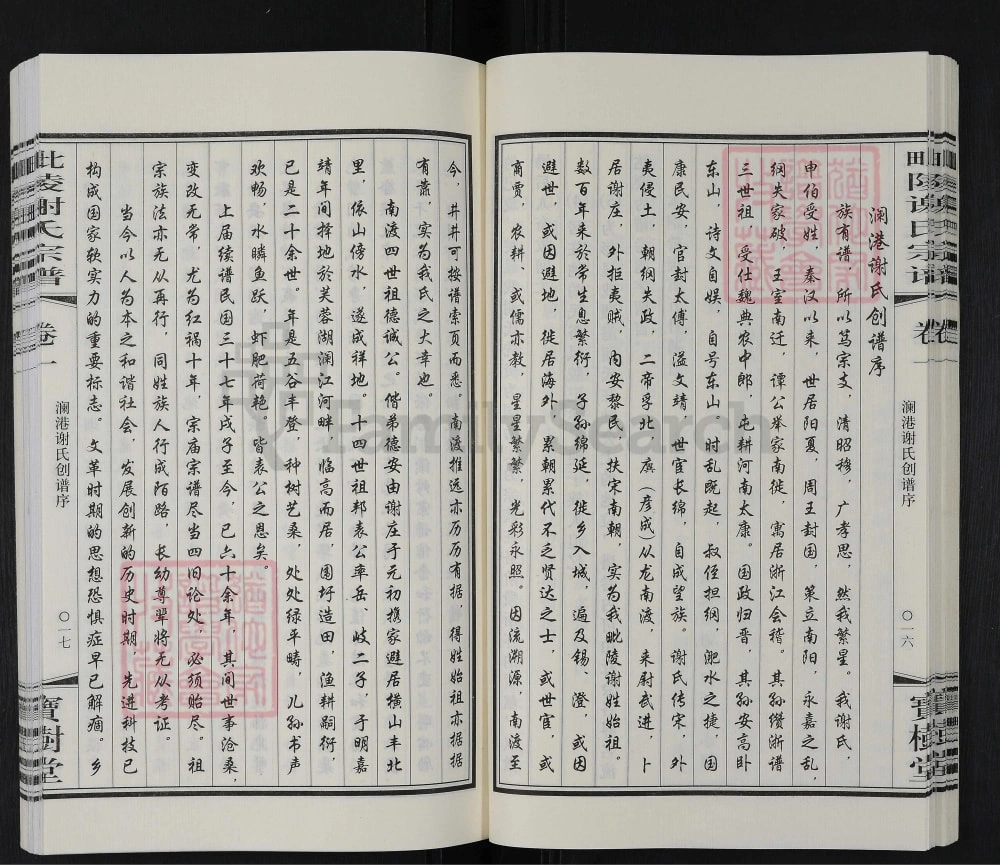 澜港谢氏创谱序
族有谱，所以笃宗支，清昭穆，广孝思，然我繁星。我谢氏，
申伯受姓，秦汉以来，世居阳夏，周王封国，策立南阳，永嘉之乱，
纲失家破，王室南迁，谭公举家南徙，寓居浙江会稽。其孙缵浙谱
三世祖，受仕魏典农中郎，屯耕河南太康。国政归晋，其孙安高卧
东山，诗文自娱，自号东山。时乱既起，叔侄担纲，淝水之捷，国
康民安，官封太傅，溢文靖，世宦长绵，自成望族。谢氏传宋，外
夷侵土，朝纲失政，二帝孚北虞（彦成）从龙南渡，来尉武进，卜
居谢庄，外拒夷贼，内安黎民，扶宋南朝，实为我毗陵谢姓始祖。
数百年来於常生息繁衍，子孙绵延，徙乡入城，遍及锡、澄，或因
避世，或因避地，徙居海外，累朝累代不乏贤达之士，或世官，或
商贾，农耕，或儒亦教，星星繁繁，光彩永照。因流溯源，南渡至
澜港谢氏创谱序
〇一六
寶樹堂
毗陵谢氏宗谱
卷一
澜港谢氏创谱序
〇一七
寶樹堂
今，井井可按谱索页而悉。南渡推远亦历历有据，得姓始祖亦据据
有萧，实为我氏之大幸也。
南渡四世祖德诚公。偕弟德安由谢庄于元初携家避居横山丰北
里，依山傍水，遂成祥地。十四世祖邦表公率岳、岐二子，于明嘉
靖年间择地於芙蓉湖澜江河畔，临高而居，围圩造田，渔耕嗣衍，
已是二十余世。年是五谷丰登，种树艺桑，处处绿平畴，儿孙书声
欢畅，水瞵鱼跃，虾肥荷艳。皆表公之恩矣。
上届续谱民国三十七年戍子至今，已六十余年，其间世事沧桑，
变改无常，尤为红祸十年，宗庙宗谱尽当四旧论处，必须贻尽。祖
宗族法亦无从再行，同姓族人行成陌路，长幼尊辈将无从考证。
当今以人为本之和谐社会，发展创新的历史时期，先进科技已
构成国家软实力的重要标志。文革时期的思想恐惧症早已解痼。乡
FamilySearch